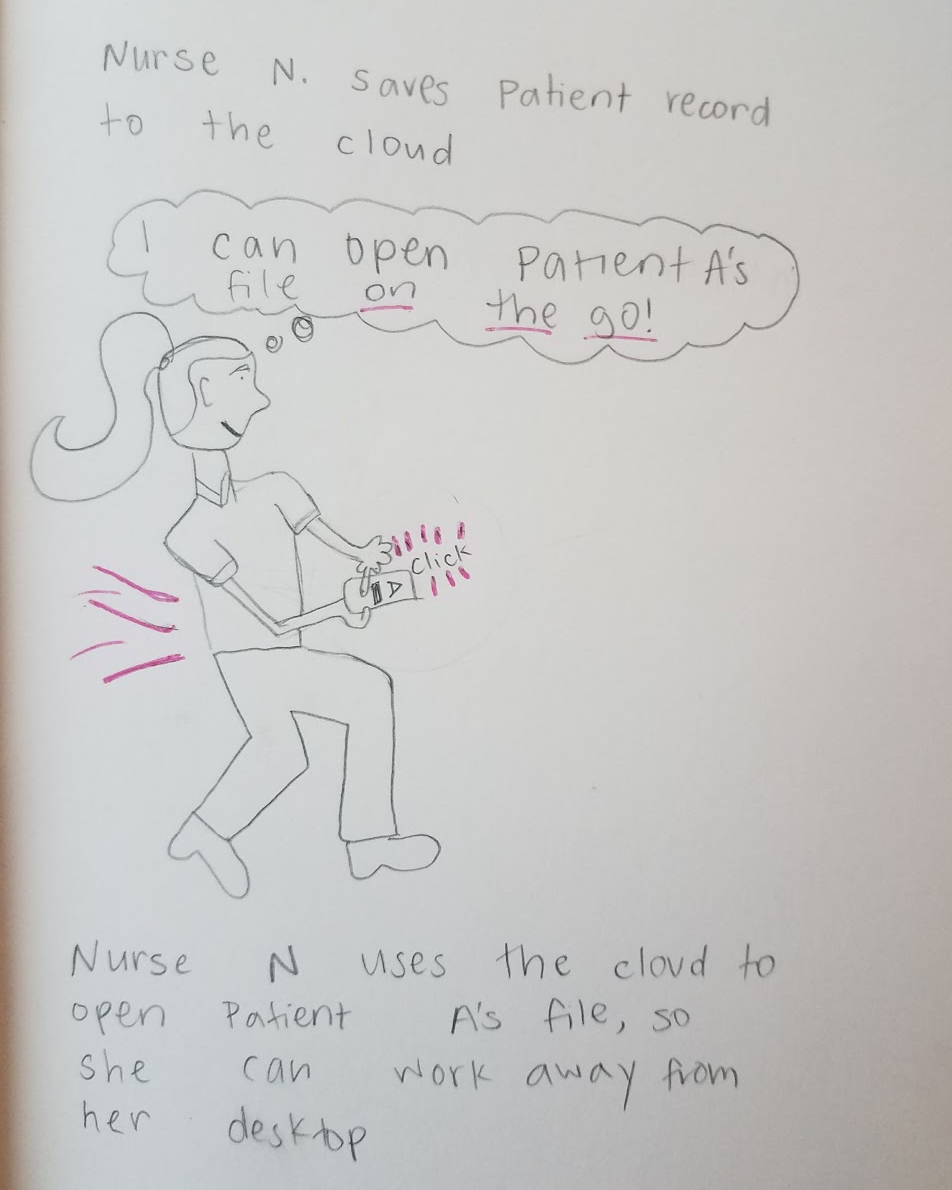 Nurse N. saves Patient record
to the cloud
I can open Patient A's
file on the go!
Click
Nurse N uses the cloud to
open Patient A's file, so
she can work away from
her desktop